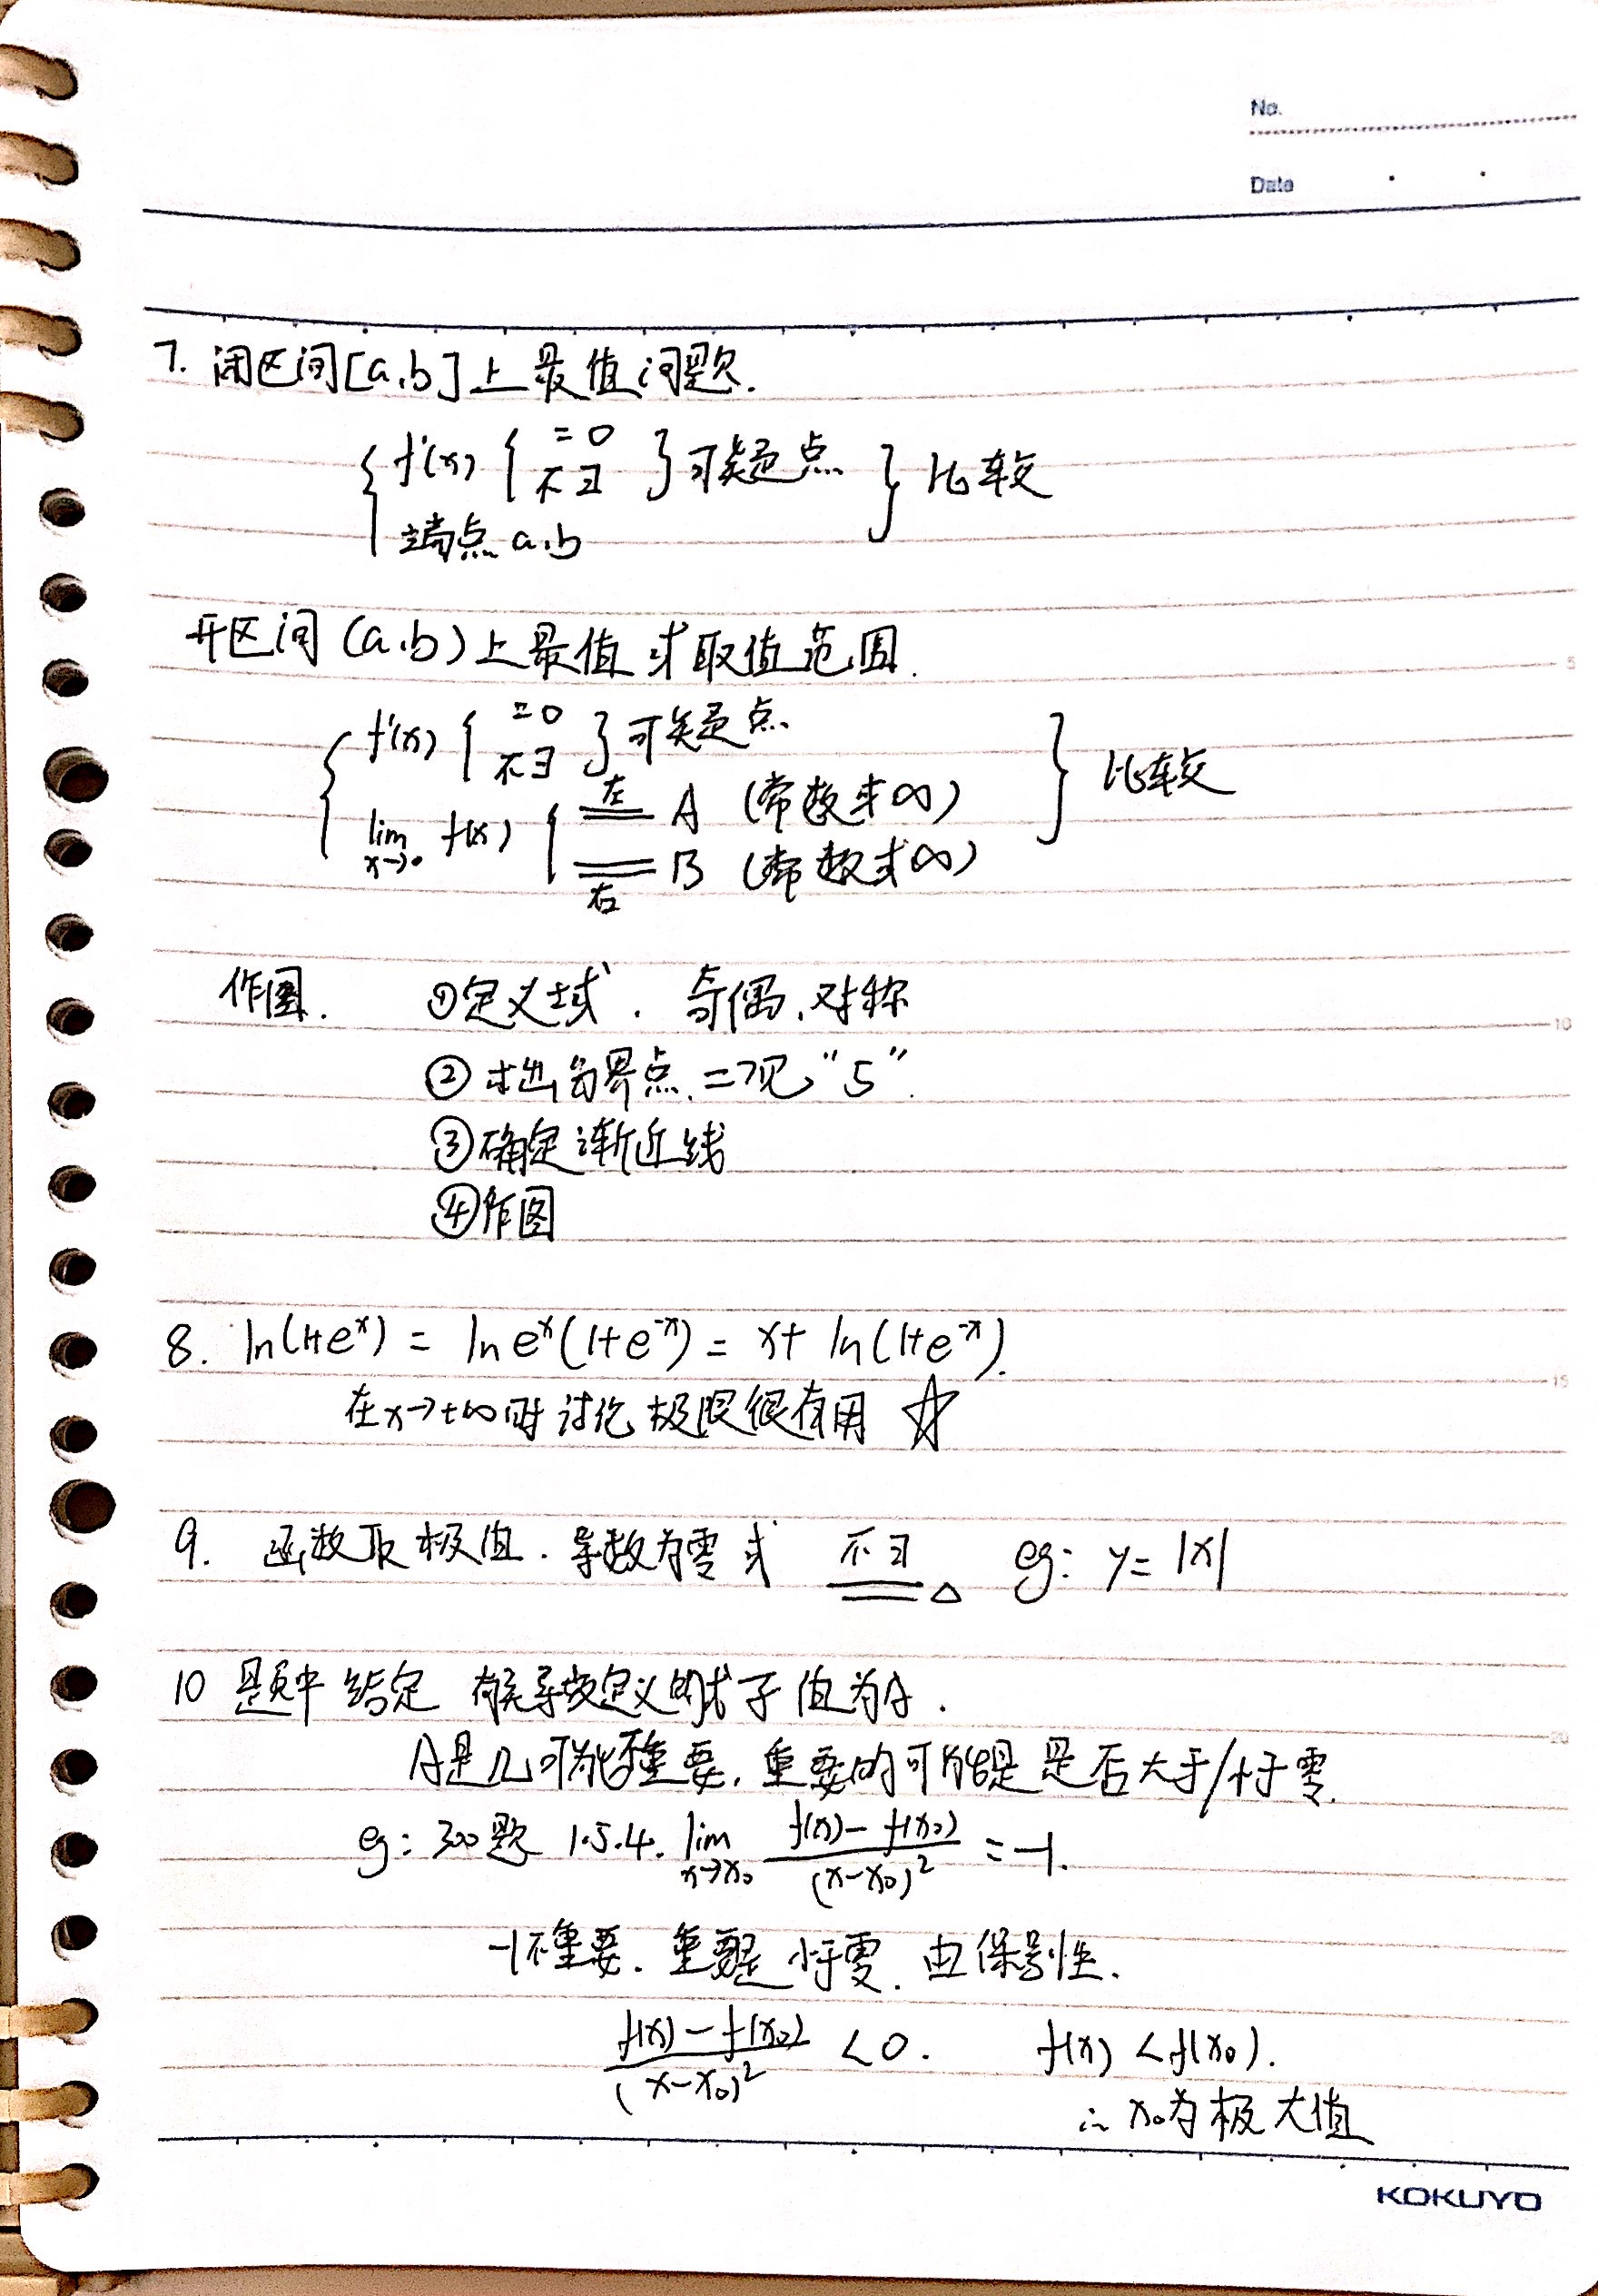 No.
Date
7. 闭区间[a,b]上最值问题.
{ f'(x) { =0 不∃ } 可疑点 } 比较
端点 a,b
开区间(a,b)上最值或取值范围.
{ f'(x) { =0 不∃ } 可疑点 } 比较
lim x→• f(x) { 左= A (常数或∞)
右= B (常数或∞)
作图. ①定义域. 奇偶,对称
②求出分界点. 二观“5”.
③确定渐近线
④作图
8. ln(1+eˣ) = ln eˣ(1+e⁻ˣ) = x+ ln(1+e⁻ˣ).
在x→+∞时讨论极限很有用 ☆
9. 函数取极值. 导数为零或 不∃△ eg: y= |x|
10 题中给定 有关导数定义的式子值为A.
A是几可能不重要, 重要的可能是是否大于/小于零.
eg: 300题 1.5.4. lim x→x₀ (f(x)-f(x₀))/(x-x₀)² =-1.
-1不重要. 重要是小于零. 由保号性.
(f(x)-f(x₀))/(x-x₀)² <0. f(x) <f(x₀).
∴ x₀为极大值
KOKUYO